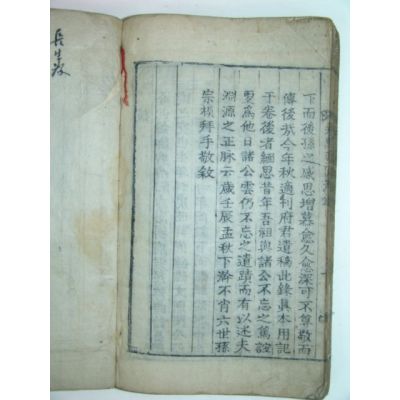 下而後孫之感思增慕愈久愈深可不尊敬而
傳後哉今年秋適利府君遺稿此錄眞本用記
于卷後者緬思昔年吾祖與諸公不忘之篤誼
更爲他日諸公雲仍不忘之遺蹟而有以述夫
淵源之正脉云歲壬辰孟秋下澣不肖六世孫
宗模拜手敬敘
長生